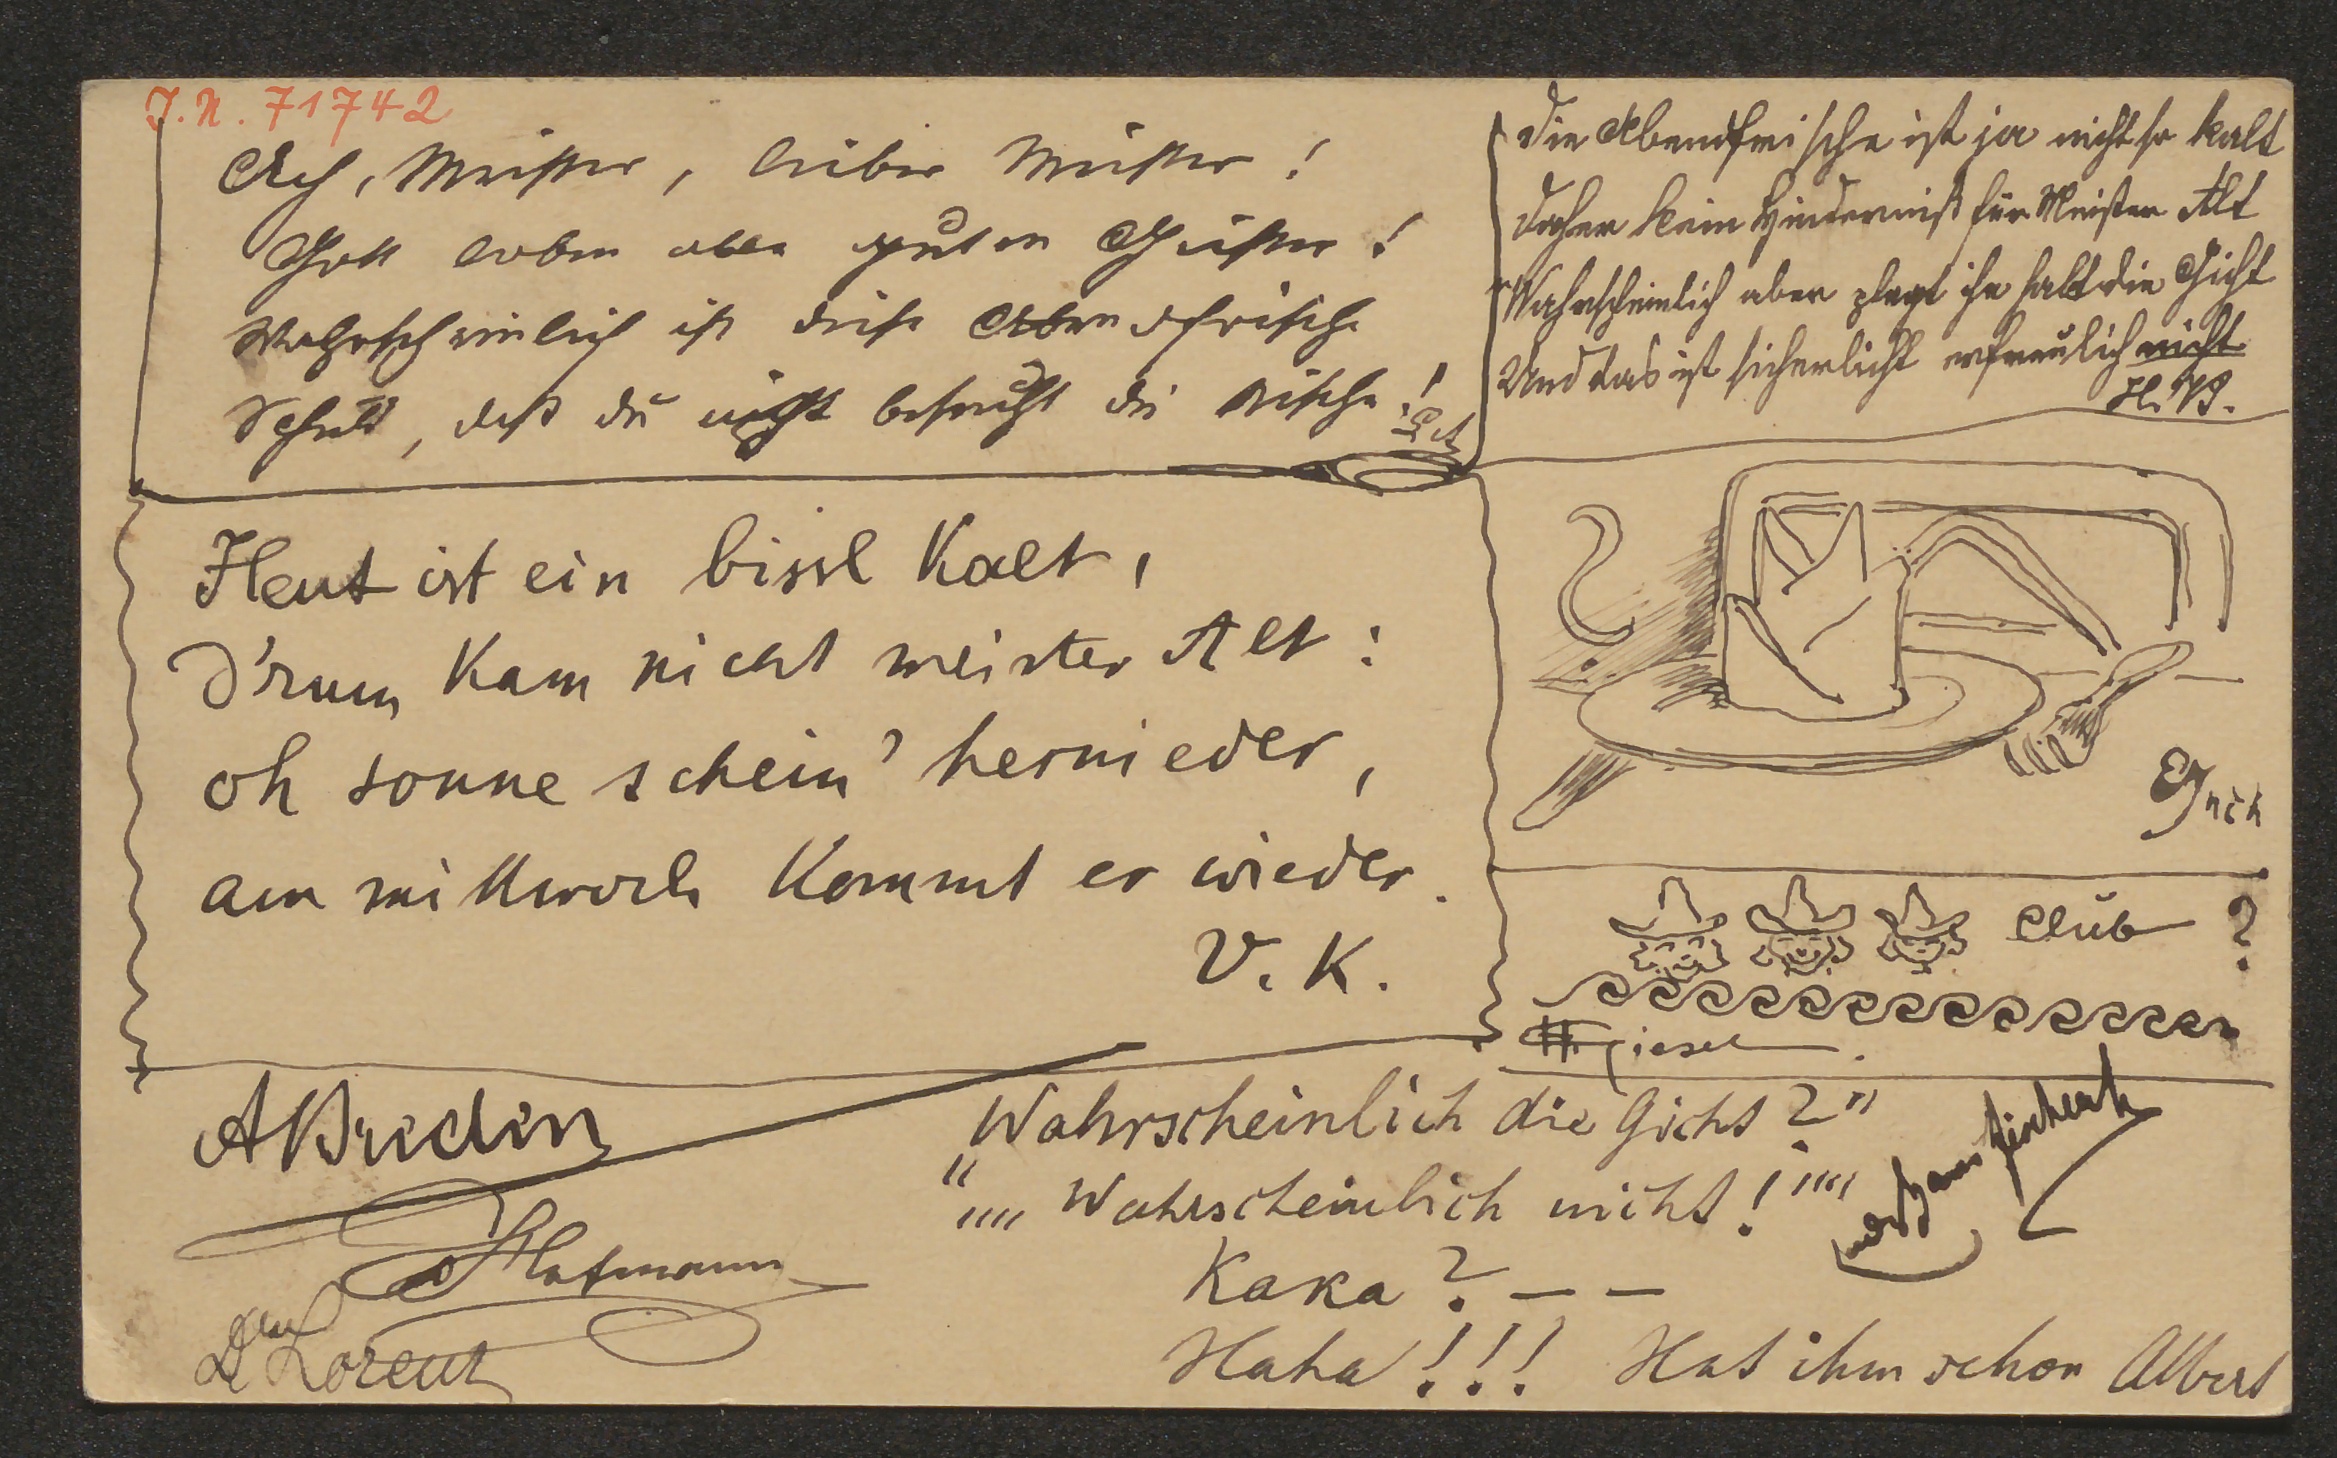 J.N. 71742
Ach, Meister, lieber Meister!
Gott loben alle guten Geister!
Wahrscheinlich ist diese Abendfrische
Schuld, daß du nicht besuchst die Tische!
Die Abendfrische ist ja nicht so kalt
Daher kein Hinderniß für Meister Alt
Wahrscheinlich aber plagt ihn halt die Gicht
Und das ist sicherlich erfreulich nicht
Heut ist ein bissl Kalt,
D'rum Kam nicht meister Alt:
oh sonne schein' hernieder,
am mittwoch Kommt er wieder.
V. K.
Club?
ABredin
"Wahrscheinlich die Gicht?"
"" Wahrscheinlich nicht! ""
Kaka? — —
Haha!!! Hat ihm schon Albert
Dr Lorenz